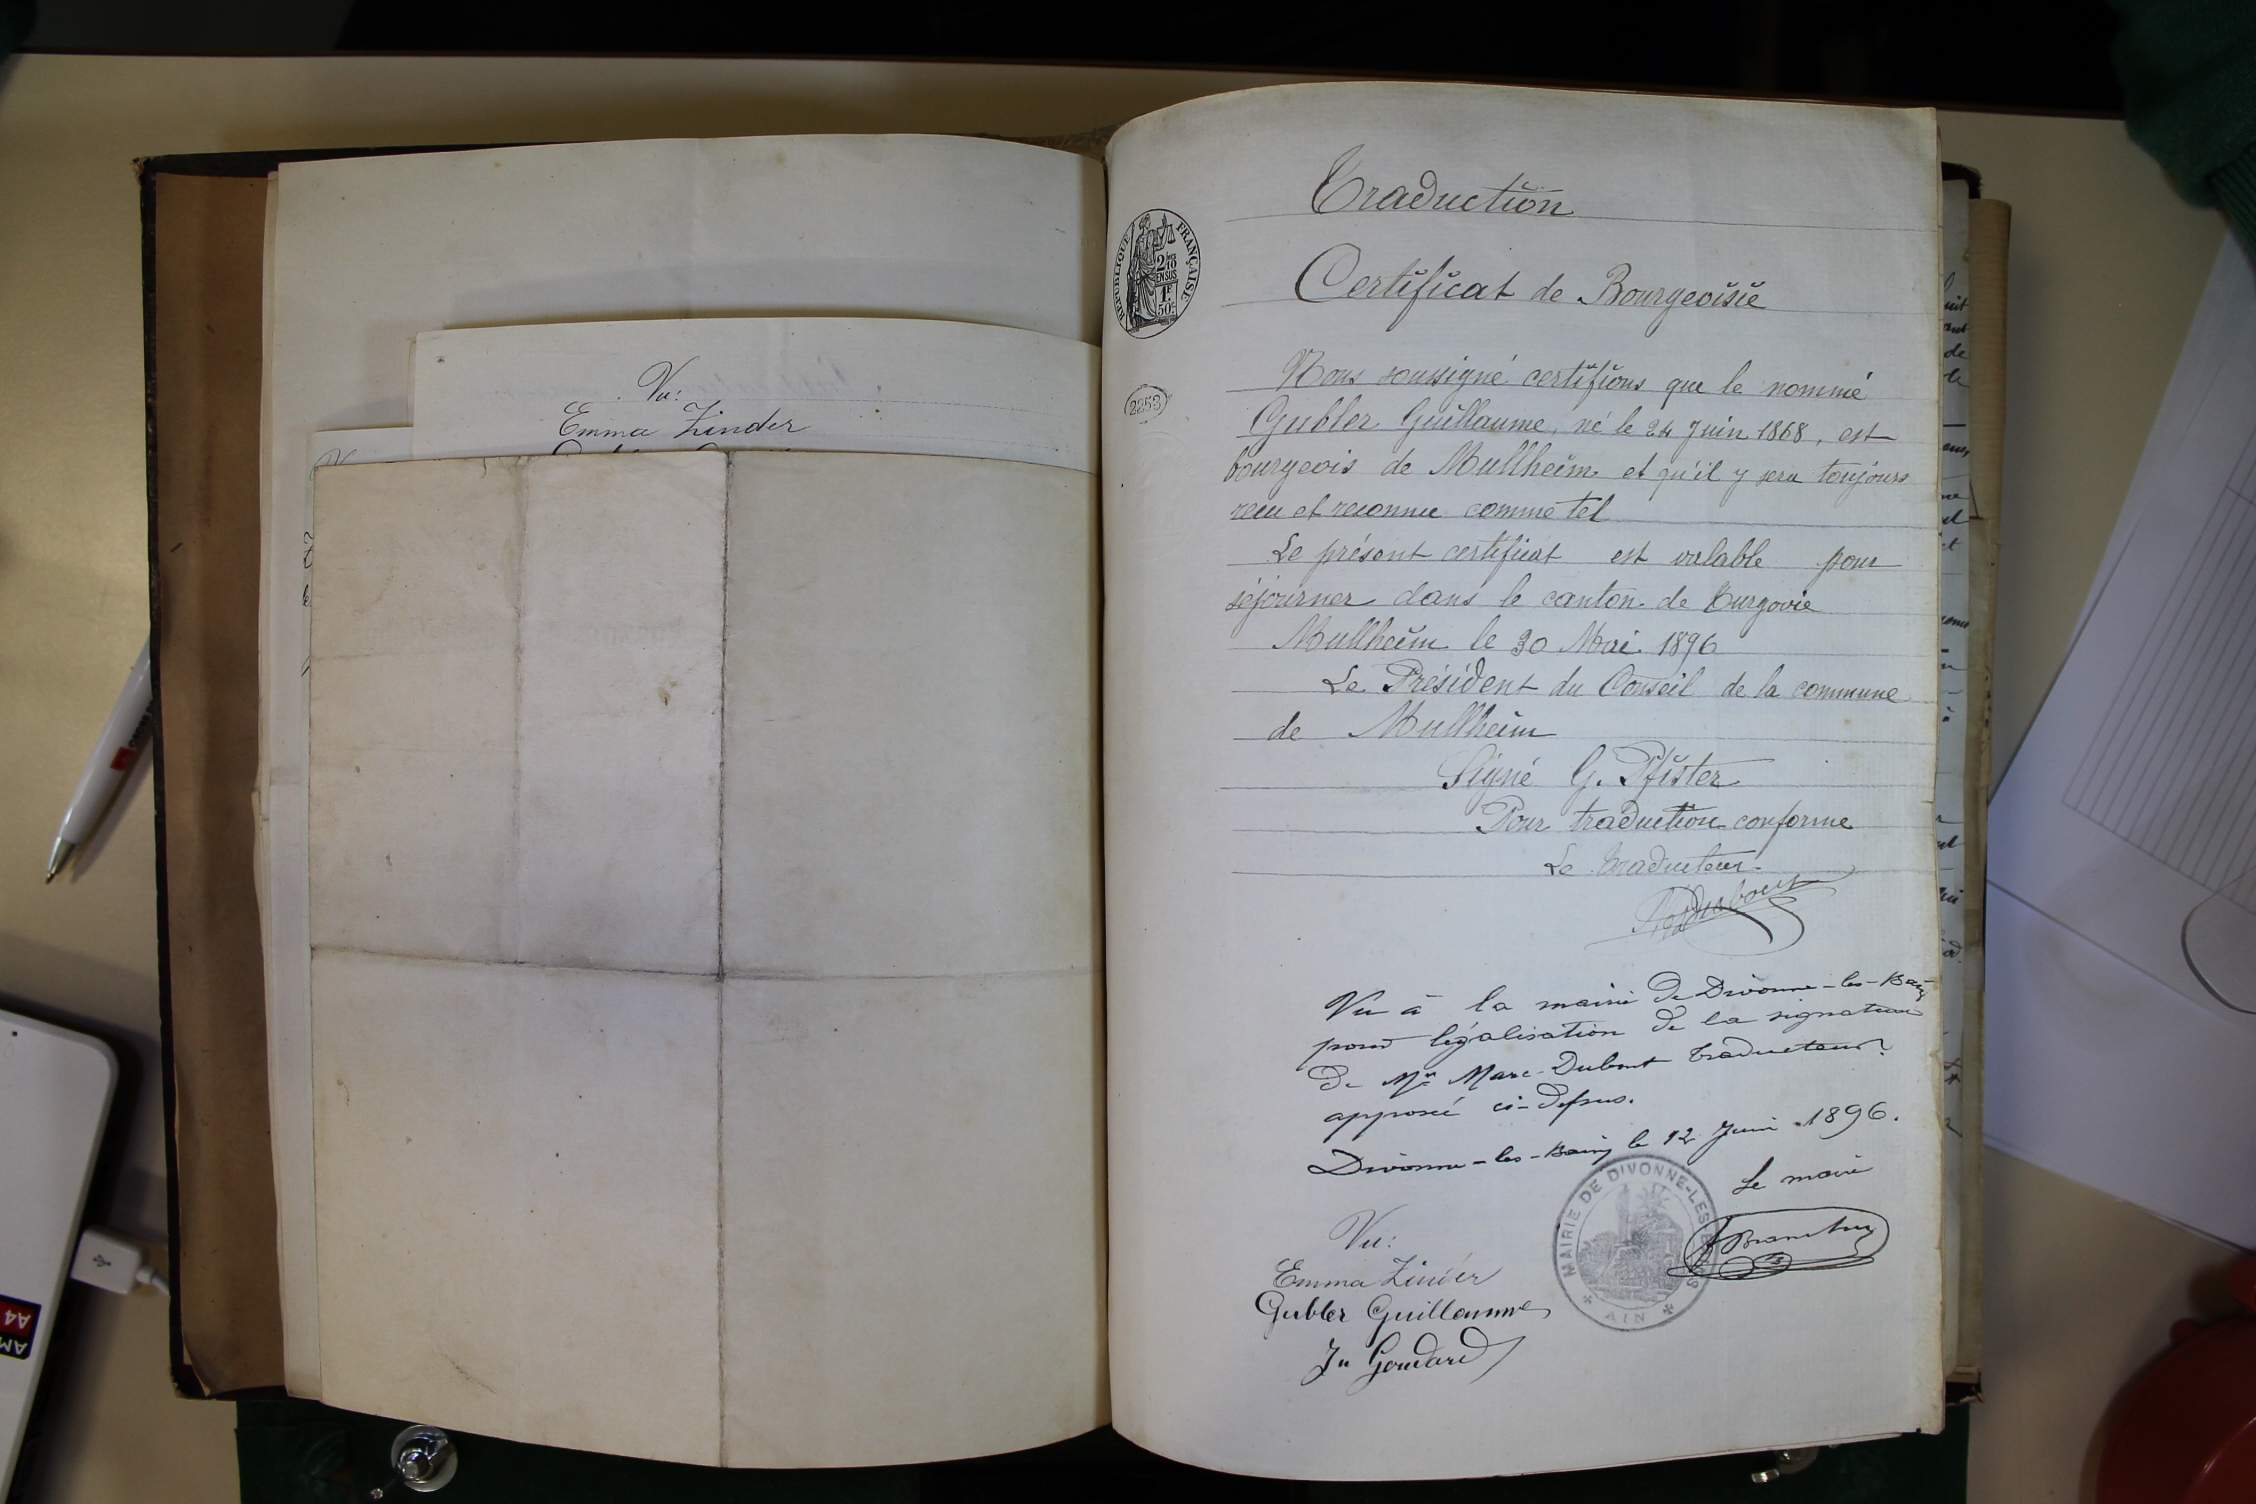 Vu:
Emma Zinder
Traduction
RÉPUBLIQUE FRANÇAISE
2/10
EN SUS
1F
50c
Certificat de Bourgeoisie
2253
Nous soussigné certifions que le nommé
Gubler Guillaume, né le 24 Juin 1868, est
bourgeois de Mullheim et qu'il y sera toujours
recu et reconnu comme tel
Le présent certificat est valable pour
séjourner dans le canton de Turgovie
Mullheim le 30 Mai 1896
Le Président du Conseil de la commune
de Mullheim
Signé G. Pfister
Pour traduction conforme
Le traducteur
Vu à la mairie de Divonne-les-Bains
pour légalisation de la signature
de Mr Marc Dubout traducteur
apposée ci-dessus.
Divonne-les-Bains le 12 Juin 1896.
Le maire
MAIRIE DE DIVONNE-LES-BAINS
AIN
Vu:
Emma Zinder
Gubler Guillaume
Jn Goudard
A4